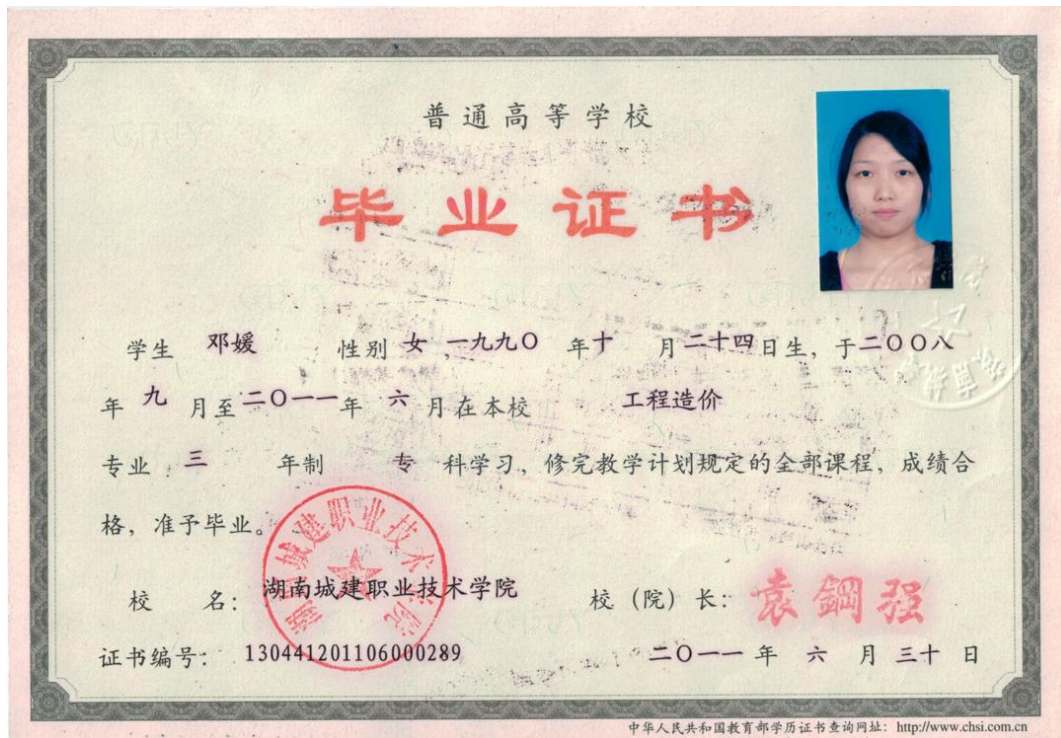 普通高等学校
毕业证书
学生 邓媛 性别 女,一九九〇 年十 月二十四日生，于二〇〇八
年 九 月至二〇一一年 六 月在本校 工程造价
专业 三 年制 专 科学习，修完教学计划规定的全部课程，成绩合
格，准予毕业。
湖南城建职业技术学院
校 名： 湖南城建职业技术学院 校（院）长： 袁鋼强
证书编号： 130441201106000289 二〇一一 年 六 月 三十 日
中华人民共和国教育部学历证书查询网址： http://www.chsi.com.cn